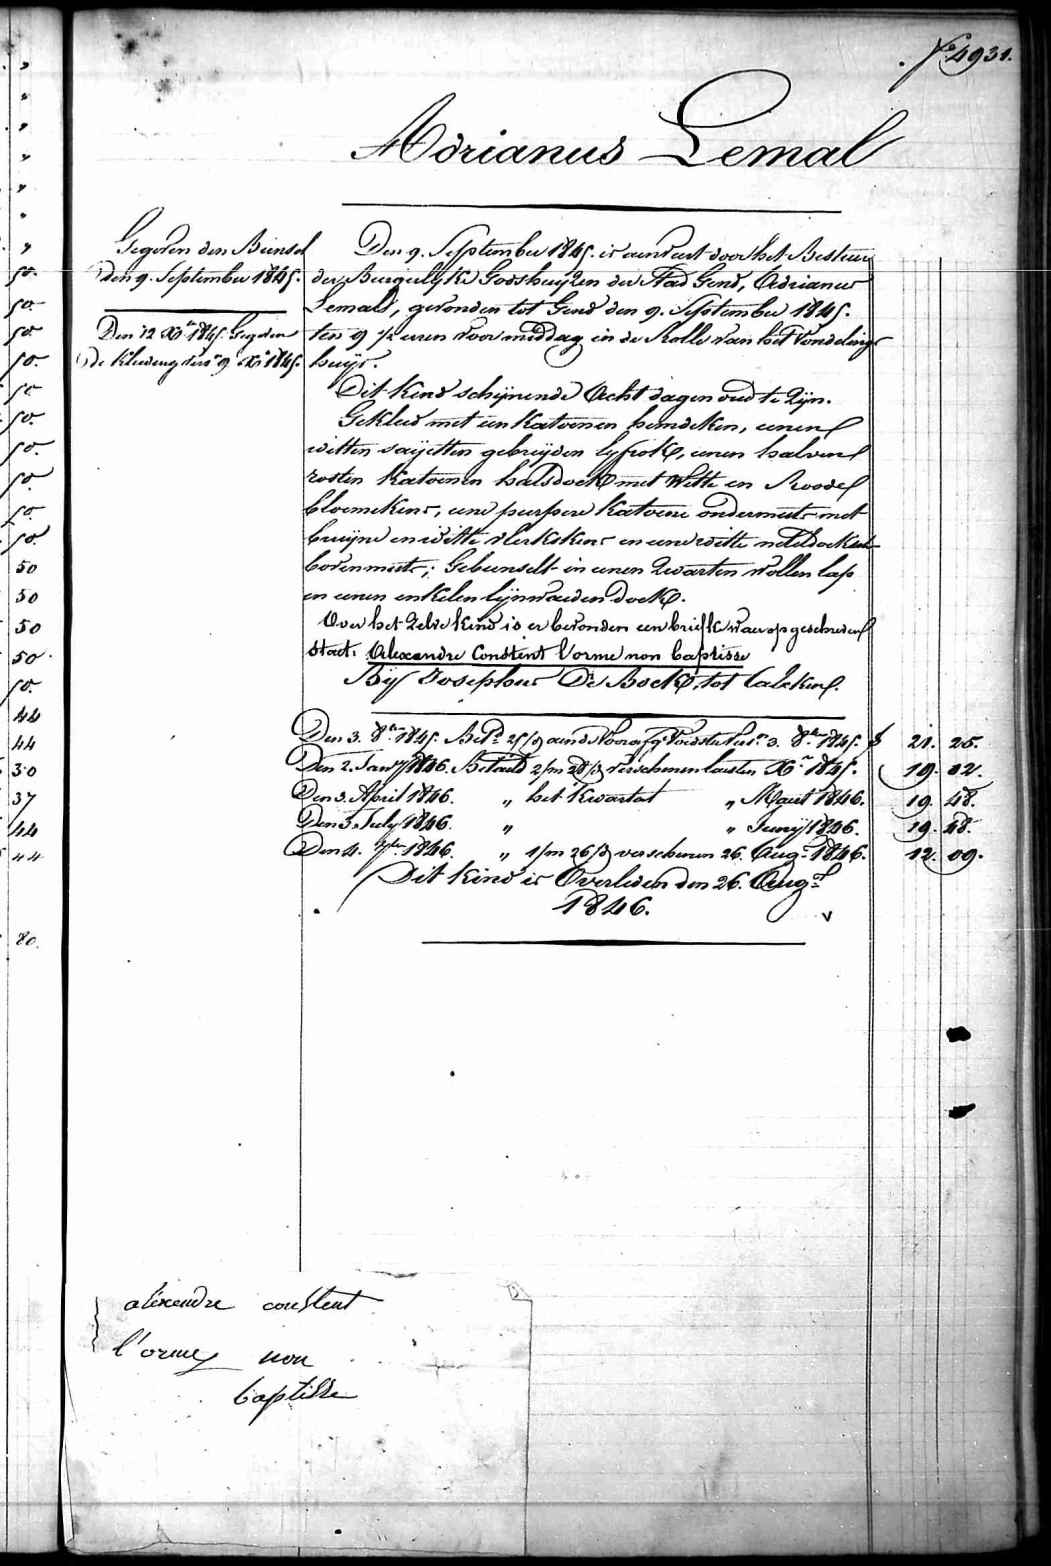 N.º 4931.
Adrianus Lemal
Gegeven den Buinsel
den 9. September 1845.
Den 12 Xbr 1845. Gegeven
de Kleeding vers. 9 Xbr 1845.
Den 9. September 1845. is aenveert door het Bestuur
der Burgerlyke Godshuyzen der Stad Gend, Adrianus
Lemal, gevonden tot Gend den 9. September 1845.
ten 9 ½ uren voormiddag in de Rolle van het Vondeling-
huys.
Dit Kind schijnende Acht dagen oud te Zijn.
Gekleed met een Katoenen hemdeken, eenen
witten sayetten gebreyden lyfrok, eenen halven
rosten Katoenen halsdoek met Witte en Roode
bloemekens, eene purpere Katoene ondermuts met
bruyne en witte vlerkskens en eene witte neteldoeksche
bovenmuts; Gebuinselt in eenen Zwarten wollen lap
en eenen enkelen lynwaeden doek.
Over het Zelve Kind is er bevonden een briefke waer op geschreven
staet. Alexandre Constent l'orme non baptisse
Bij Josephus De Bock, tot Calcken.
Den 3. 8br 1845. 21. 25.
Den 2. Janry 1846. Betaeld 2/m 28/d verschenen lasten Xbr 1845. 19. 02.
Den 3. April 1846. " het Kwartael " Maert 1846. 19. 48.
Den 3. July 1846. " " Junij 1846. 19. 48.
Den 4. 7ber 1846. " 1/m 26/d verschenen 26. Aug. 1846. 12. 09.
Dit kind is Overleden den 26. Augt
1846.
aléxendre constent
l'orme non
baptisse
50
50
50
50
50
50
50
50
50
50
50
50
50
50
50
50
44
44
30
37
44
44
80.